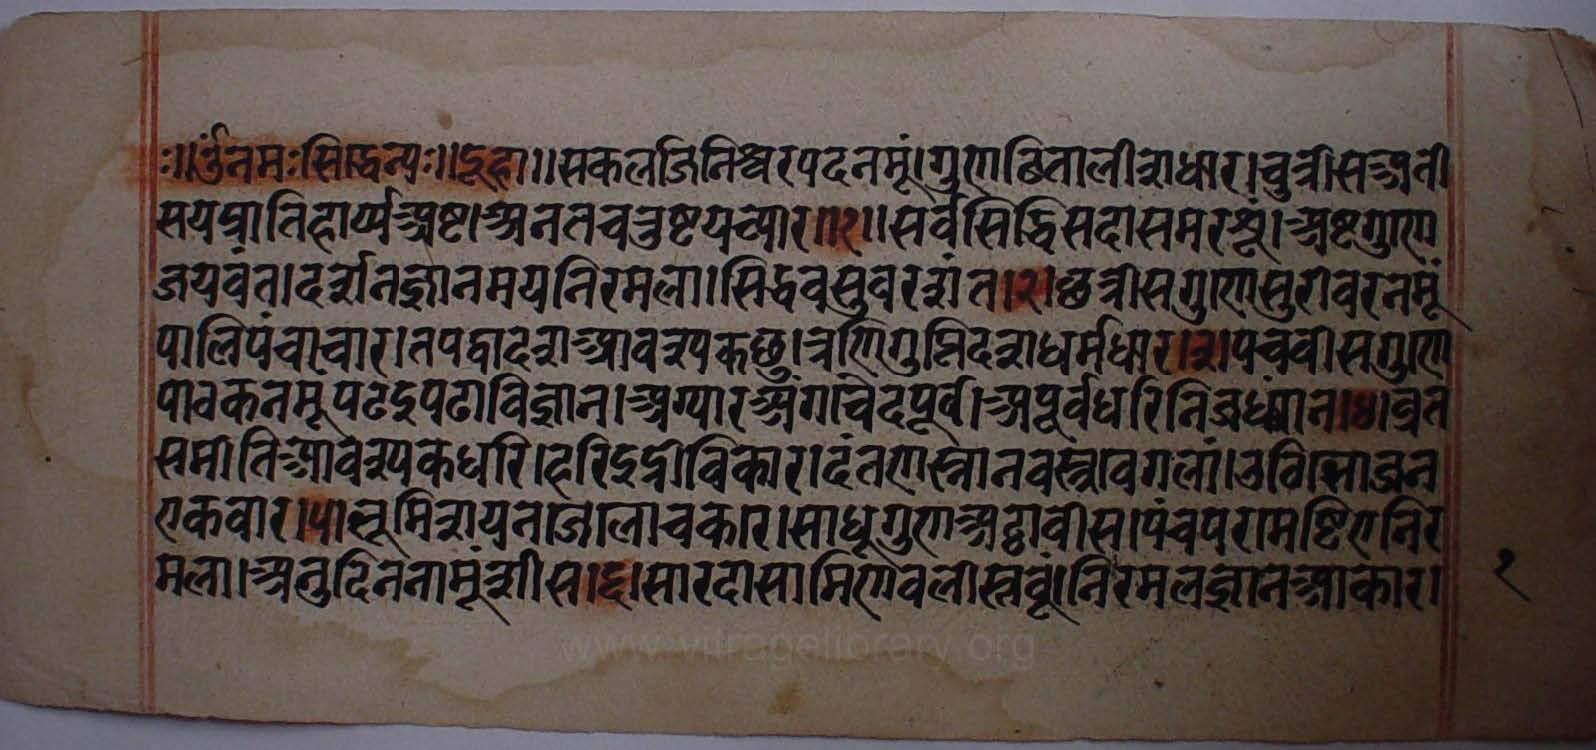 ॥ॐनमःसिद्धेन्यः॥दूहा॥सकलजिनिश्वरपदनमूं।गुणछितालीशधार।चुत्रीसअती
सयप्रातिहार्य्यअष्ट।अनतचतुष्टयच्यार॥१॥सर्वसिद्धिसदासमरशूं।अष्टगुण
जयवंत।दर्शनज्ञानमयनिरमला।सिद्धवसुवरशंत।२।छत्रीसगुणसुरीवरनमूं
पालिपंचाचार।तपद्वादशआवश्यकछ।त्रणिगुप्तिदशधर्मधार।३।पचवीसगुण
पावकनमूपढइपढाविज्ञान।अग्यारअंगचिदपूर्व।अपूर्वधरिनिजध्यांन।४।व्रत
समीतिआवश्यकधरि।हरिइद्रीविकार।दंतणस्नानवस्त्रावगलां।उविभोजन
एकवार।५।भूमिशयनाजालाचकार।साधूगुणअठ्ठावीस।पंचपरामष्टिएनिर
मला।अनुदिननामूंशीस।६।सारदासामिणिवलीस्तवूं।निरमलज्ञानआकार।
१
www.vitragelibrary.org